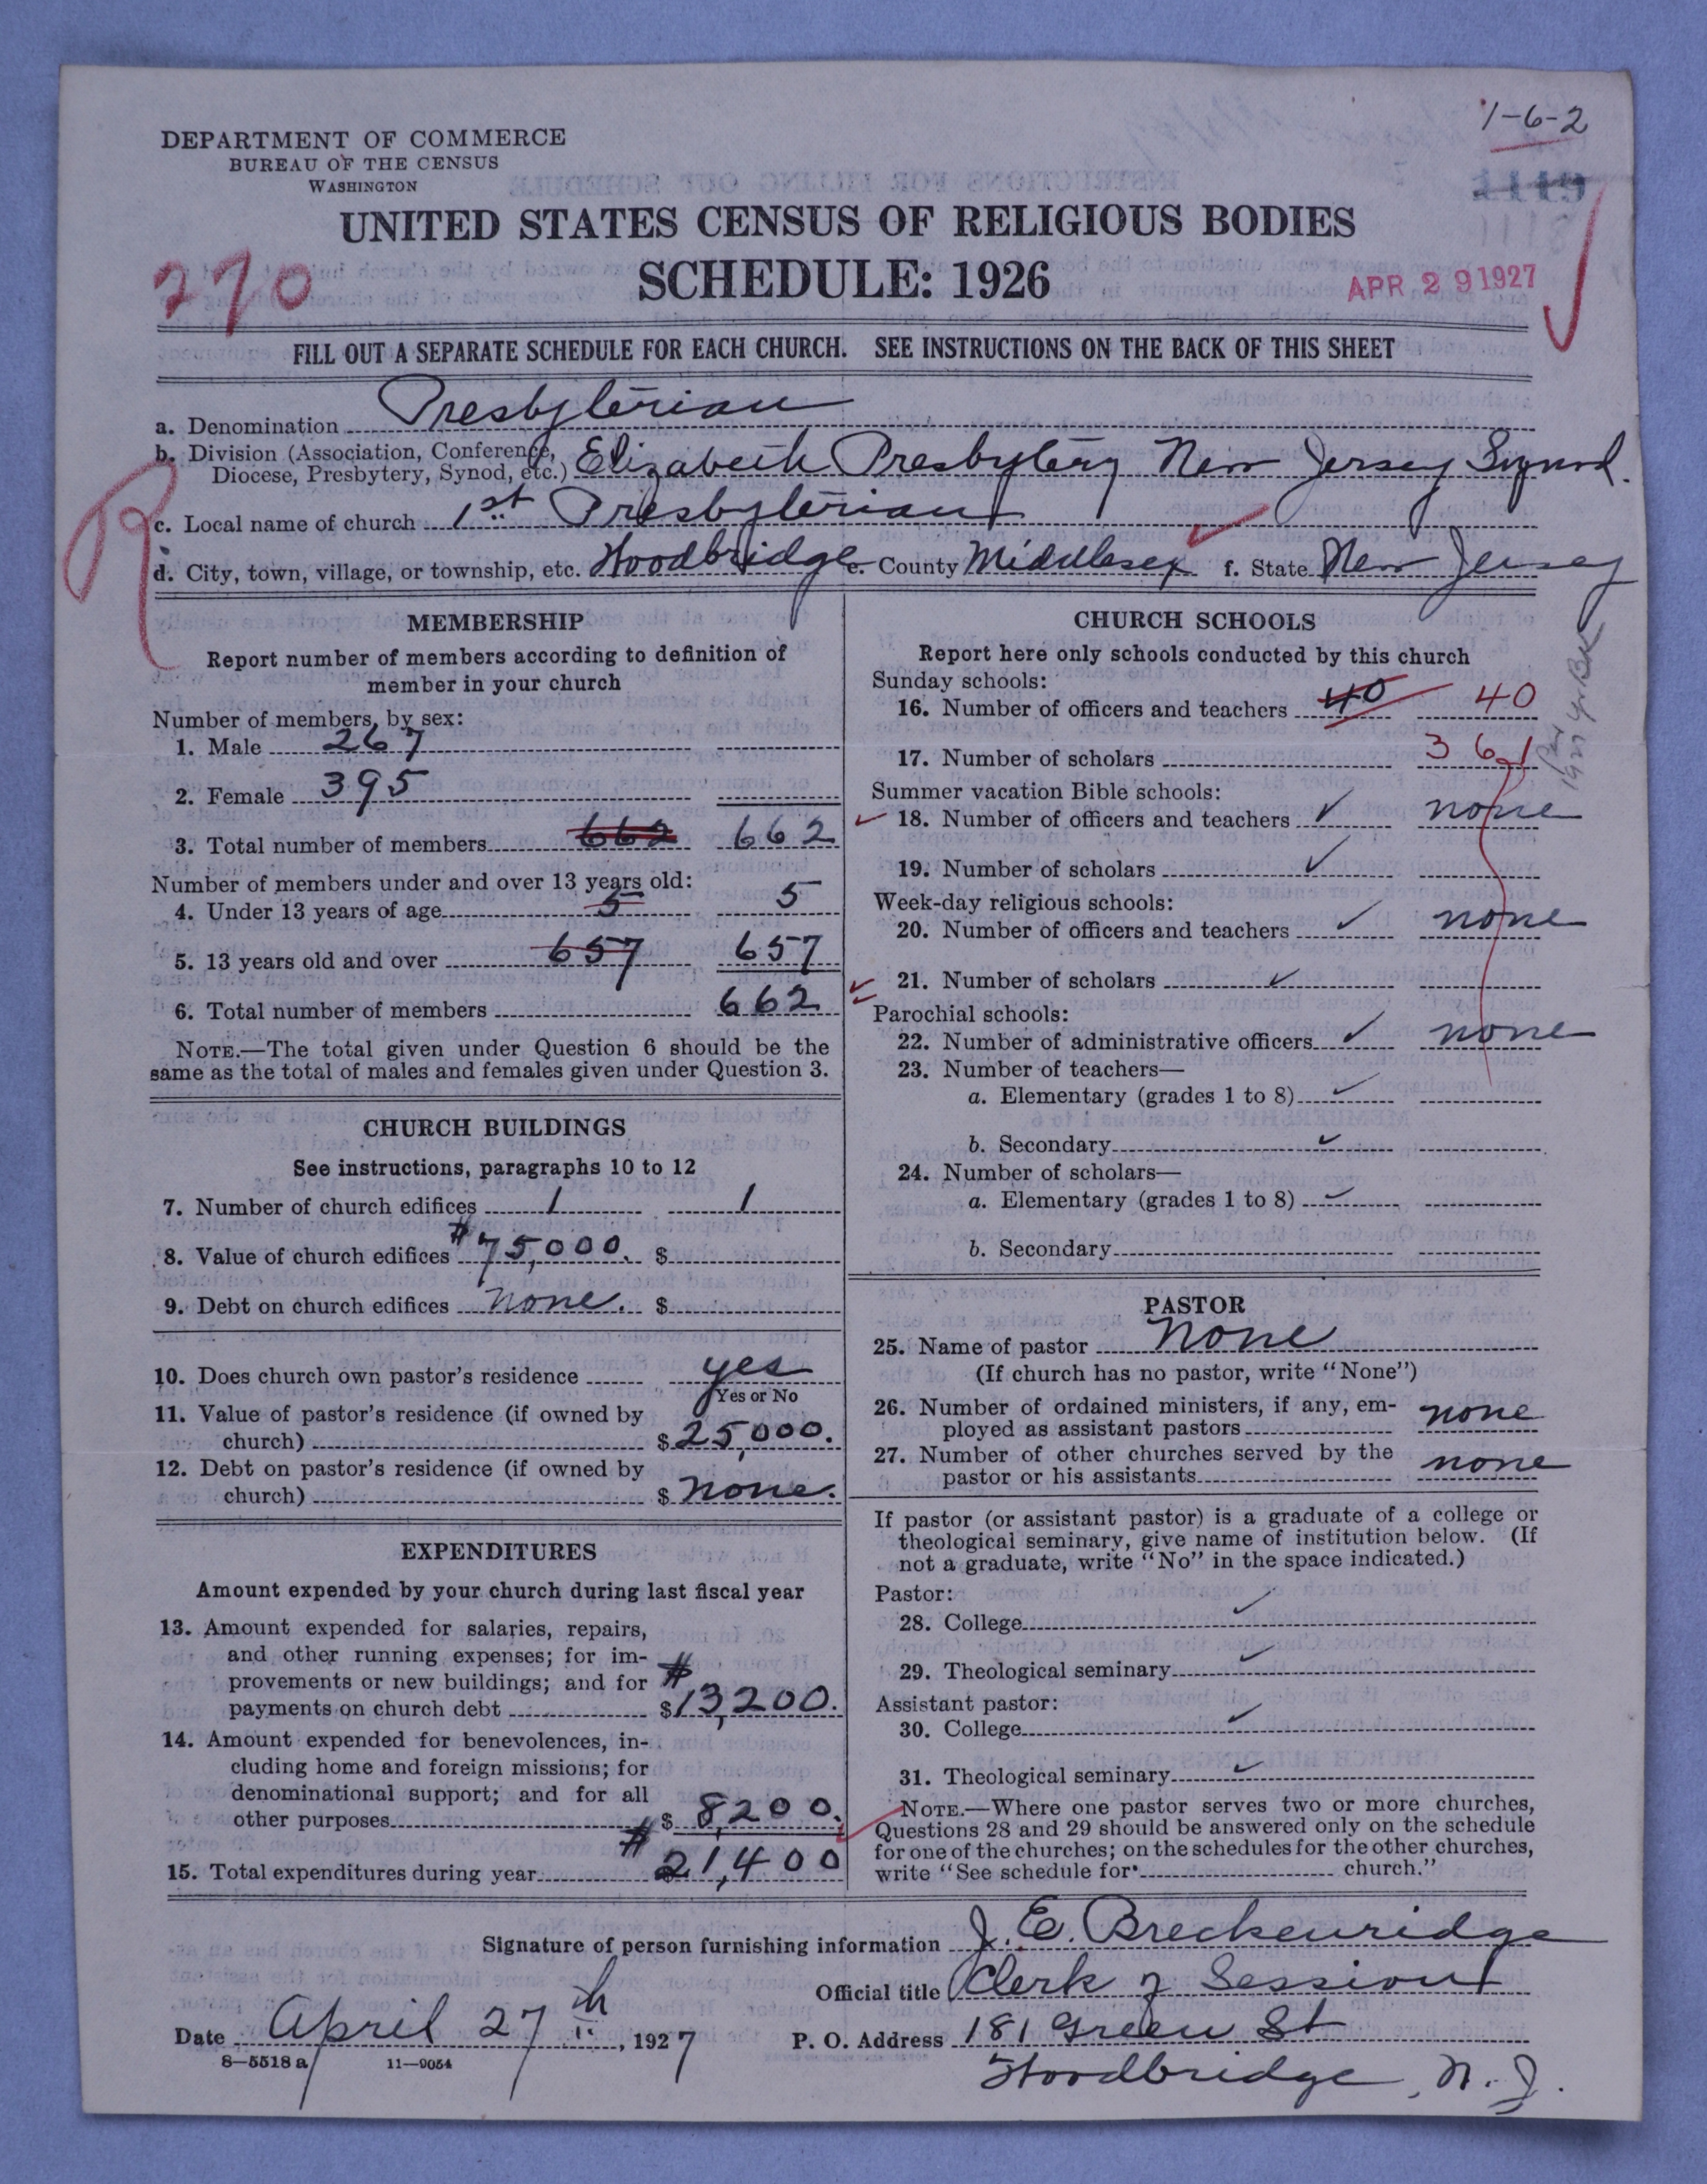 1-6-2
DEPARTMENT OF COMMERCE
BUREAU OF THE CENSUS
WASHINGTON
1119
UNITED STATES CENSUS OF RELIGIOUS BODIES
270
SCHEDULE: 1926
APR 29 1927
FILL OUT A SEPARATE SCHEDULE FOR EACH CHURCH. SEE INSTRUCTIONS ON THE BACK OF THIS SHEET
a. Denomination Presbyterian
b. Division (Association, Conference, Diocese, Presbytery, Synod, etc.) Elizabeth Presbytery New Jersey Synod.
R
c. Local name of church 1st Presbyterian
d. City, town, village, or township, etc. Woodbridge e. County Middlesex f. State New Jersey
MEMBERSHIP
Report number of members according to definition of
member in your church
Number of members, by sex:
1. Male 267
2. Female 395
3. Total number of members 662 662
Number of members under and over 13 years old:
4. Under 13 years of age 5 5
5. 13 years old and over 657 657
6. Total number of members 662
NOTE.—The total given under Question 6 should be the
same as the total of males and females given under Question 3.
CHURCH BUILDINGS
See instructions, paragraphs 10 to 12
7. Number of church edifices 1 1
8. Value of church edifices #75,000. $
9. Debt on church edifices none. $
10. Does church own pastor's residence yes
Yes or No
11. Value of pastor's residence (if owned by
church) $ 25,000.
12. Debt on pastor's residence (if owned by
church) $ None.
EXPENDITURES
Amount expended by your church during last fiscal year
13. Amount expended for salaries, repairs,
and other running expenses; for im-
provements or new buildings; and for #
payments on church debt $13,200.
14. Amount expended for benevolences, in-
cluding home and foreign missions; for
denominational support; and for all
other purposes $ 8,200.
#
15. Total expenditures during year 21,400
CHURCH SCHOOLS
Report here only schools conducted by this church
Sunday schools:
16. Number of officers and teachers 40 40
17. Number of scholars 361
1927 Yr Bk
Summer vacation Bible schools:
18. Number of officers and teachers none
19. Number of scholars
Week-day religious schools:
20. Number of officers and teachers none
21. Number of scholars
Parochial schools:
22. Number of administrative officers none
23. Number of teachers—
a. Elementary (grades 1 to 8)
b. Secondary
24. Number of scholars—
a. Elementary (grades 1 to 8)
b. Secondary
PASTOR
25. Name of pastor None
(If church has no pastor, write "None")
26. Number of ordained ministers, if any, em-
ployed as assistant pastors none
27. Number of other churches served by the
pastor or his assistants none
If pastor (or assistant pastor) is a graduate of a college or
theological seminary, give name of institution below. (If
not a graduate, write "No" in the space indicated.)
Pastor:
28. College
29. Theological seminary
Assistant pastor:
30. College
31. Theological seminary
NOTE.—Where one pastor serves two or more churches,
Questions 28 and 29 should be answered only on the schedule
for one of the churches; on the schedules for the other churches,
write "See schedule for church."
Signature of person furnishing information J. E. Breckenridge
Official title Clerk of Session
Date April 27th, 1927 P. O. Address 181 Green St
8-5518 a 11-9054
Woodbridge, N. J.